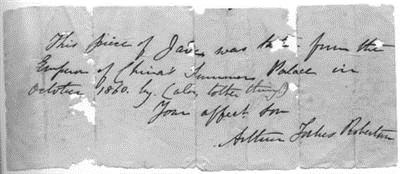 This piece of Jade was from the
Emperor of China's Summer Palace in
October 1860. by
Your affect. son
Arthur Forbes Robertson